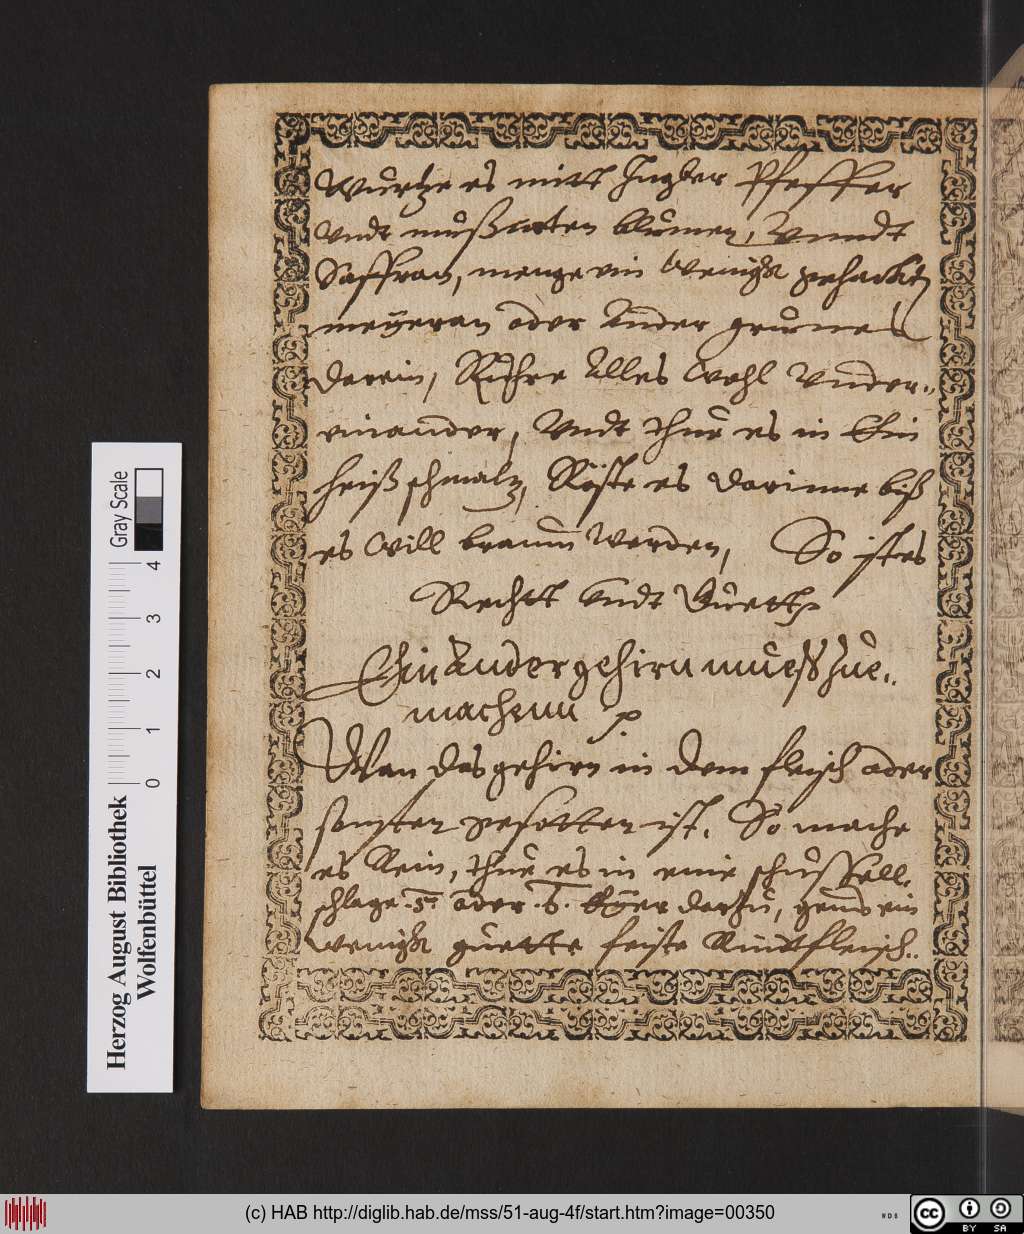 Würtze es mitt Ingber Pfeffer
Vndt mußcaten blümen, Vnndt
Saffran, menge ein wenigk gehackten
meÿeran oder ander grünes
darein, Rühre alles wohl vnder..
einander, Vndt thue es in Ein
heiß schmaltz, Röste es darinne biß
es will braun werden, So ist es
Rechtt vndt Guett
Ein Ander gehirn mueß zue..
machenn p.
Wan das gehirn in dem fleisch oder
sonsten gesotten ist. So mache
es Klein, thue es in eine schüssell.
schlage .5. oder .6. Eÿer darzu, gens ein
wenigk guette feiste Rindtfleisch..
Gray Scale
0 1 2 3 4
Herzog August Bibliothek
Wolfenbüttel
(c) HAB http://diglib.hab.de/mss/51-aug-4f/start.htm?image=00350
WDB
cc BY SA